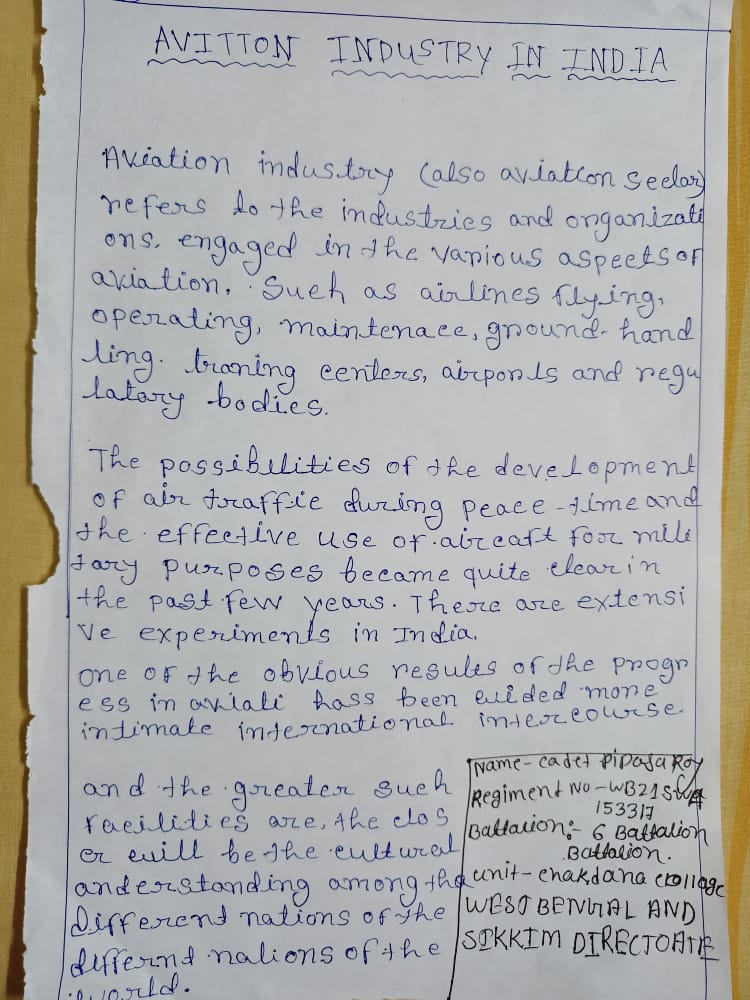 AVITTON INDUSTRY IN INDIA
Aviation industry (also aviation seelar)
refers to the industries and organizati
ons. engaged in the various aspects of
aviation. Such as airlines flying,
operating, maintenace, ground-hand
ling. traning centers, airports and regu
latory bodies.
The possibilities of the development
of air traffic during peace-time and
the effective use of aircaft foor mili
tary purposes became quite clear in
the past few years. There are extensi
ve experiments in India.
one of the obvious results of the progr
ess in aviati hass been more
intimate international intercourse
and the greater such
facilities are, the clos
er will be the cultural
understanding among the
different nations of the
differnd nations of the
world.
Name - cadet Pipasa Roy
Regiment No - WB21SWA
153317
Battalion:- 6 Battalion
Battalion.
unit - chakdaha collage
WEST BENGAL AND
SIKKIM DIRECTOATE